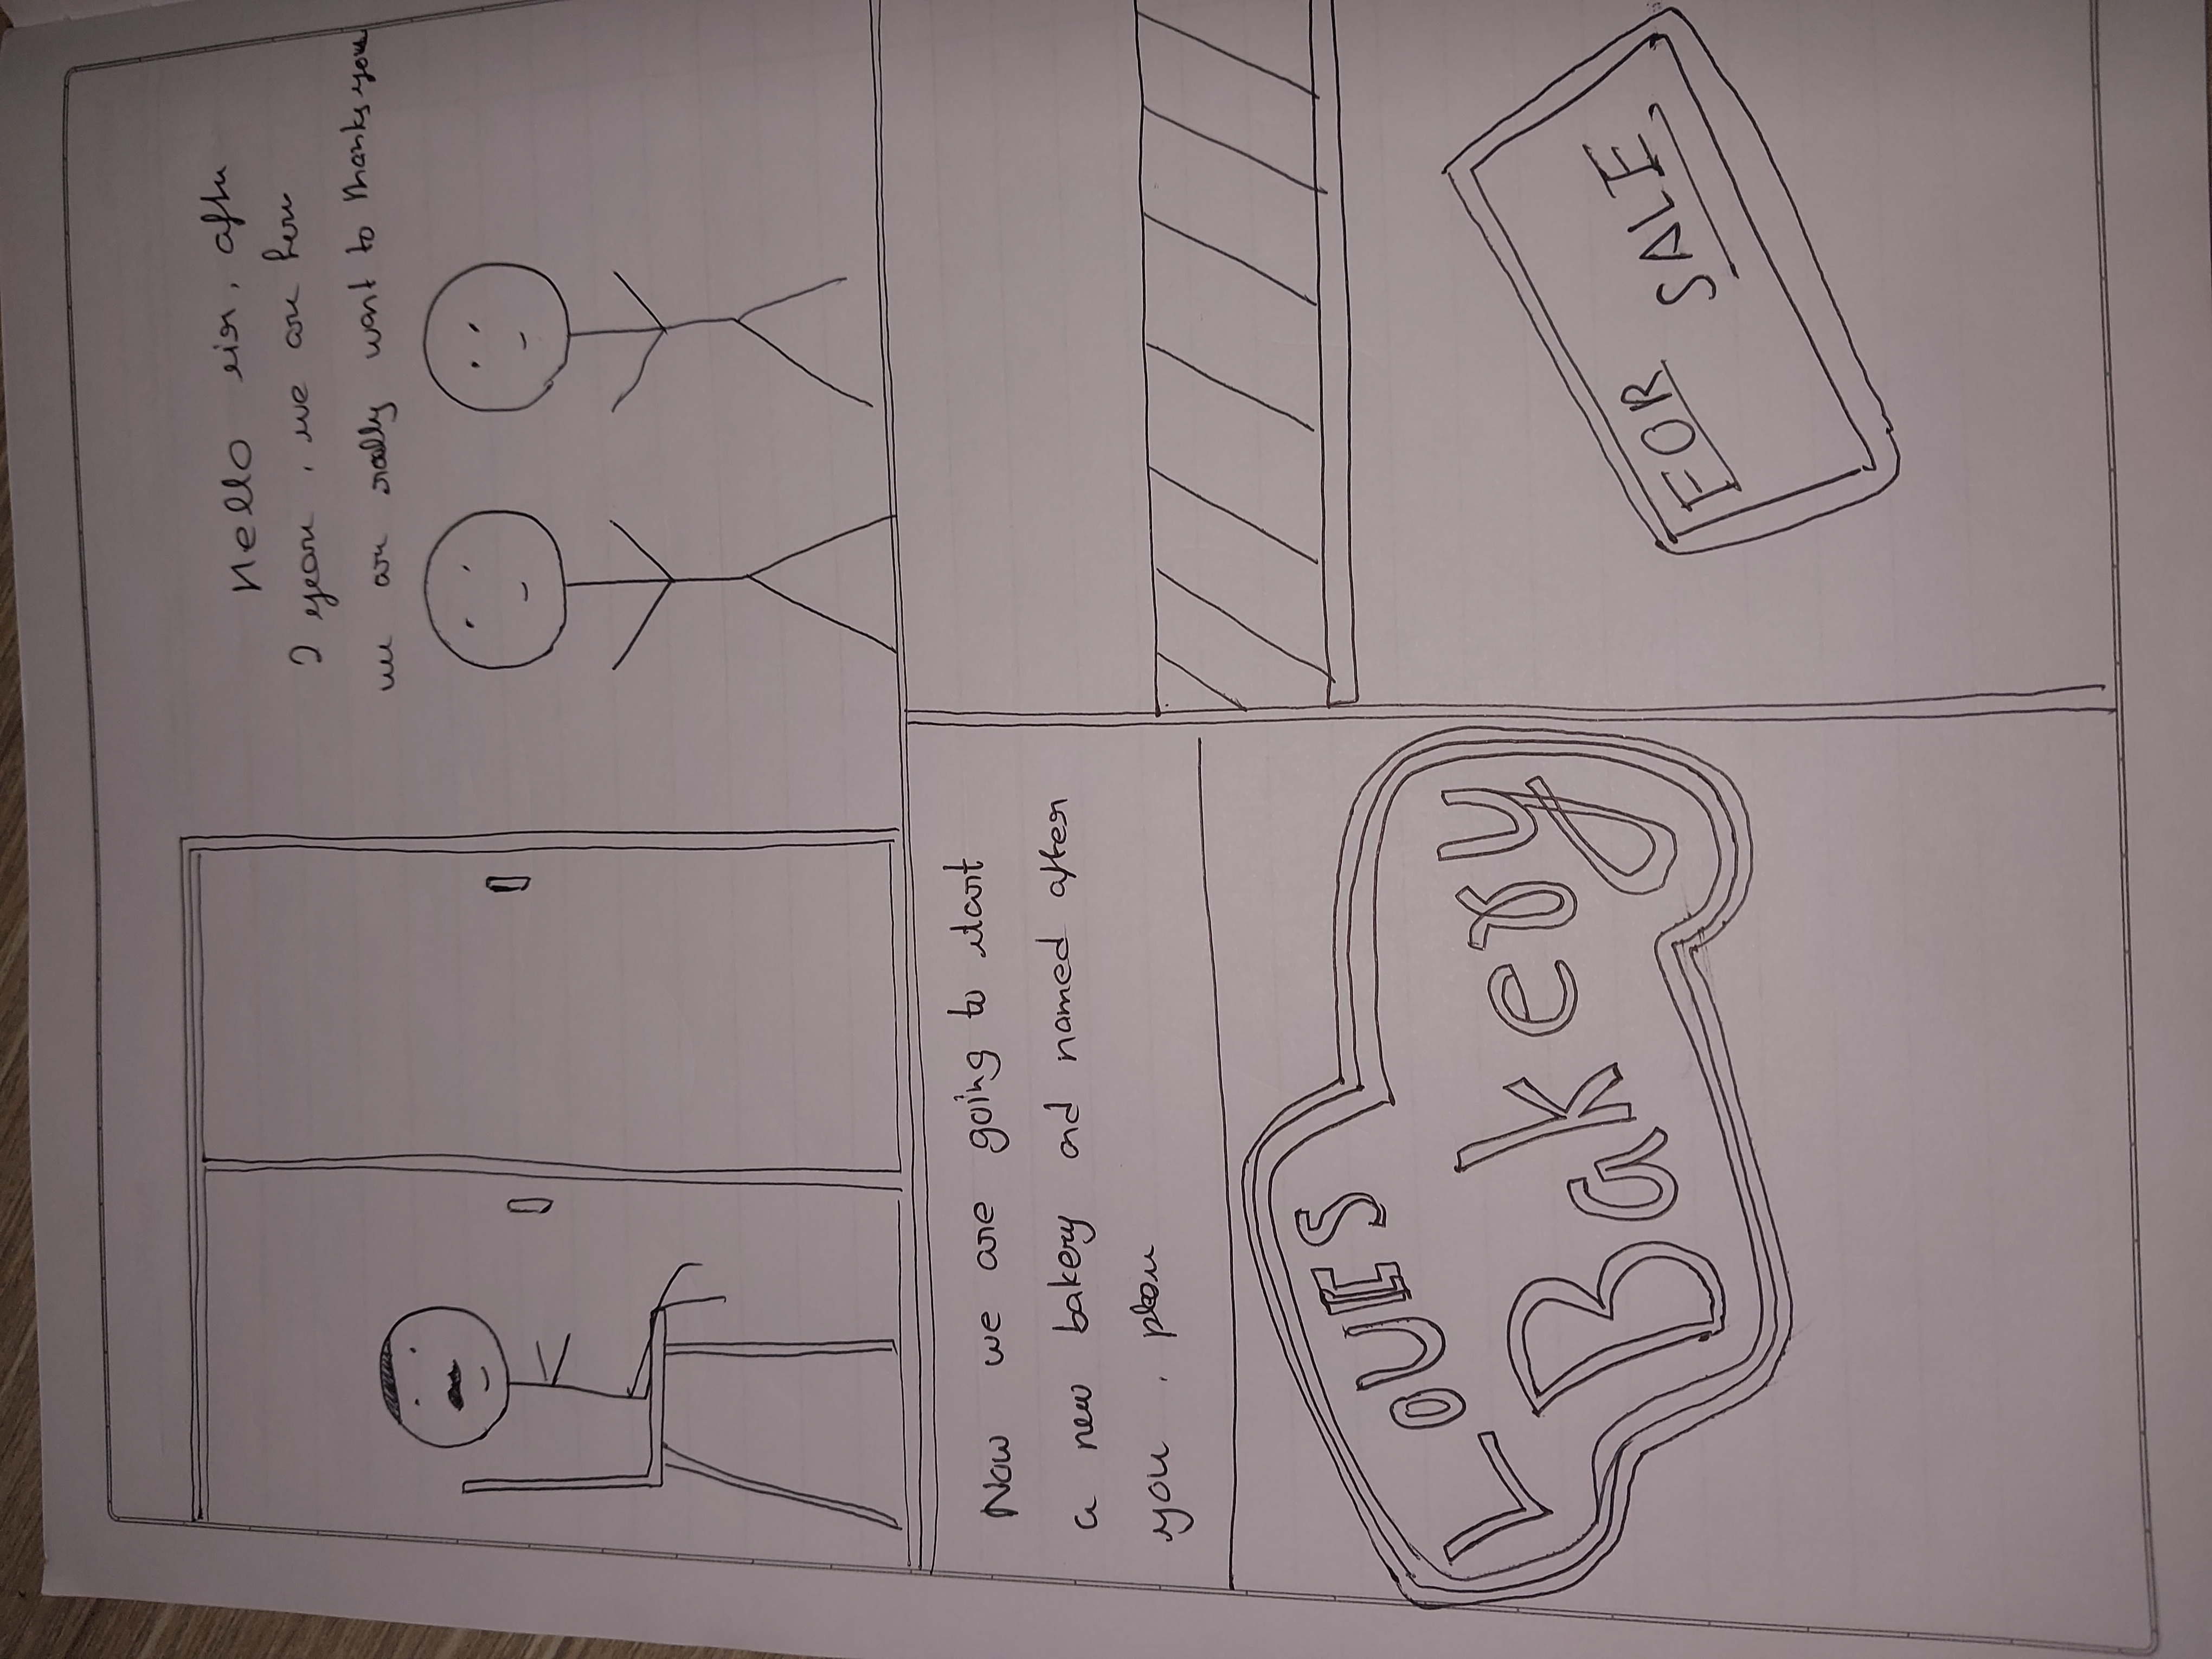 Hello sir, after
years, we are here
we are really want to thanks you
Now we are going to start
a new bakery and named after
you,
LOUES
Bakery
FOR SALE